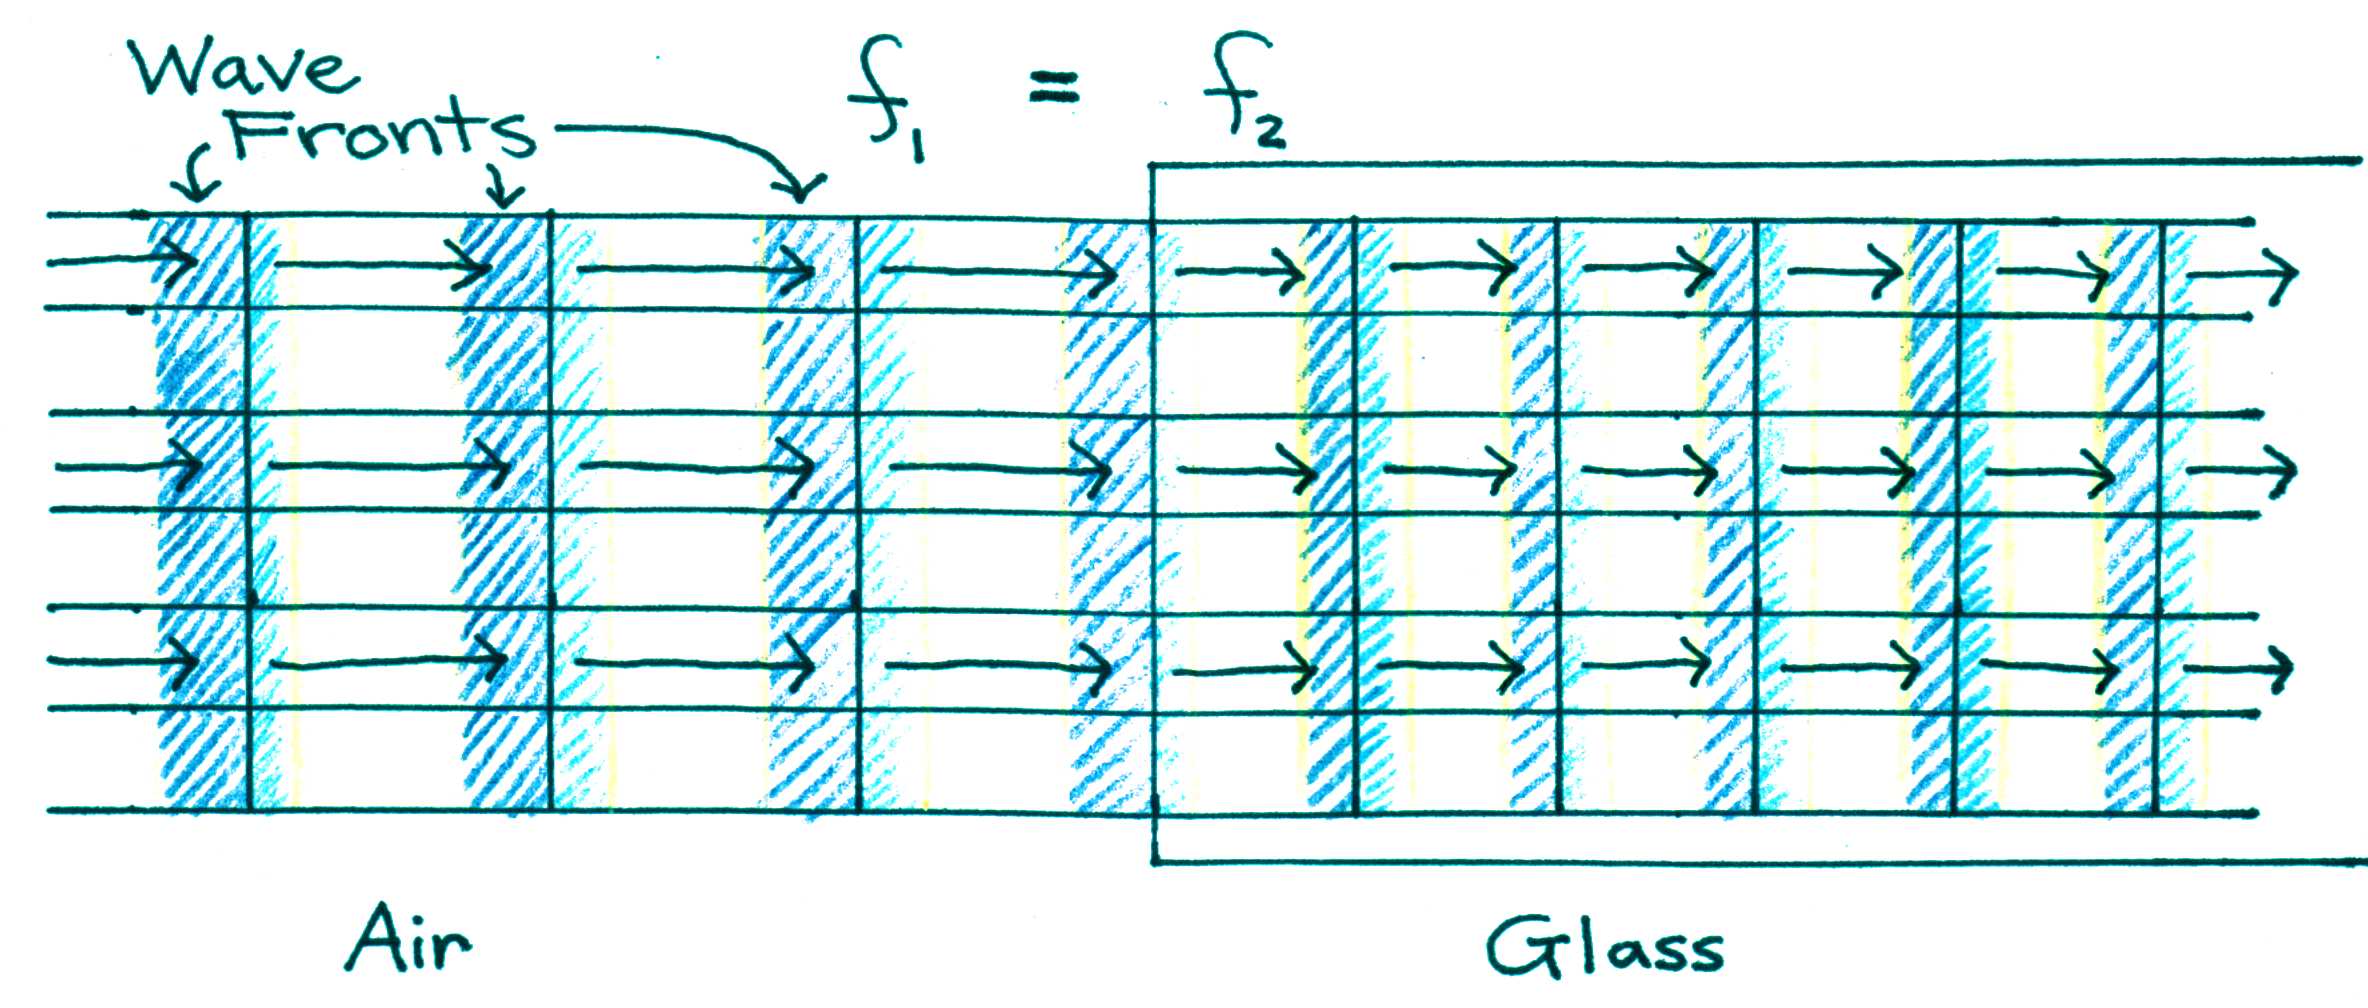 Wave
Fronts
f₁ = f₂
Air
Glass